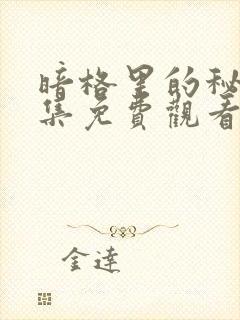 暗格里的秘
集免費觀看
金達